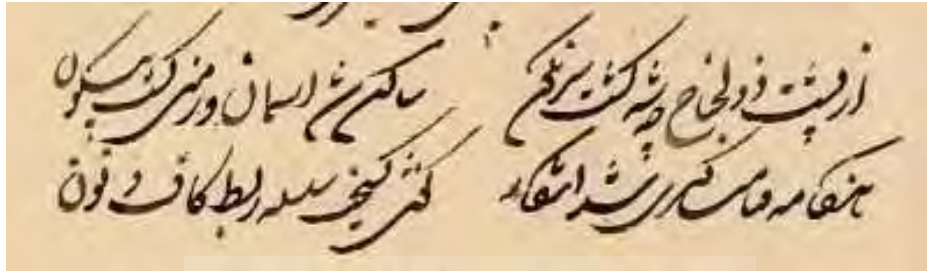 از پشت ذوالجناح چو شه گشت سرنگون ساکن شد اسمان و زمین گشت بیسکون
هنگامه قیامت کبری شد اشکار گفتی گسیخت سلسله ربط کاف و نون